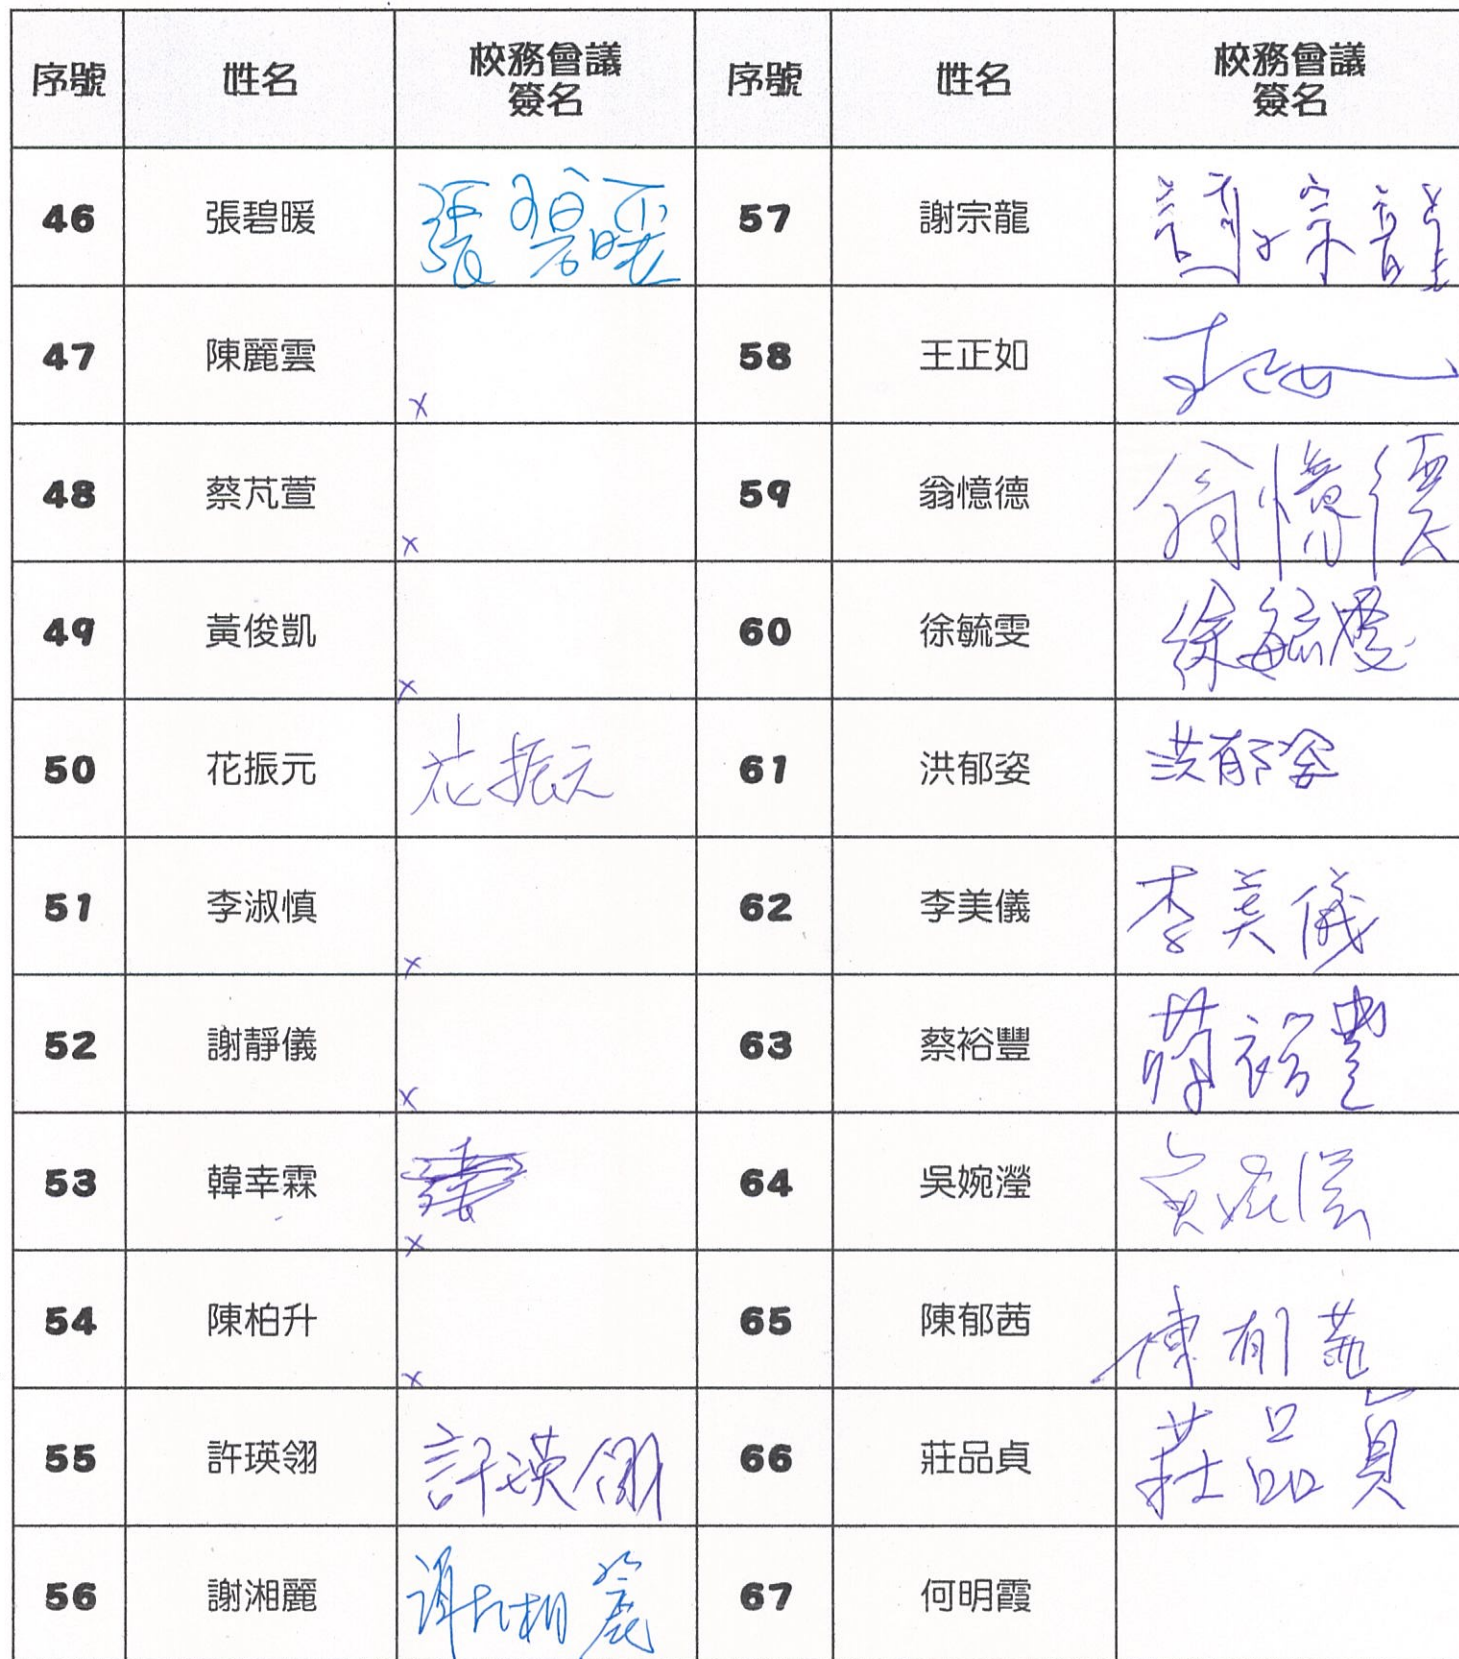 序號 姓名 校務會議簽名 序號 姓名 校務會議簽名
46 張碧暖 張碧暖 57 謝宗龍 謝宗龍
47 陳麗雲 x 58 王正如 王正如
48 蔡芃萱 x 59 翁憶德 翁憶德
49 黃俊凱 x 60 徐毓雯 徐毓雯
50 花振元 花振元 61 洪郁姿 洪郁姿
51 李淑慎 x 62 李美儀 李美儀
52 謝靜儀 x 63 蔡裕豐 蔡裕豐
53 韓幸霖 x 64 吳婉瀅 吳婉瀅
54 陳柏升 x 65 陳郁茜 陳郁茜
55 許瑛翎 許瑛翎 66 莊品貞 莊品貞
56 謝湘麗 謝湘麗 67 何明霞